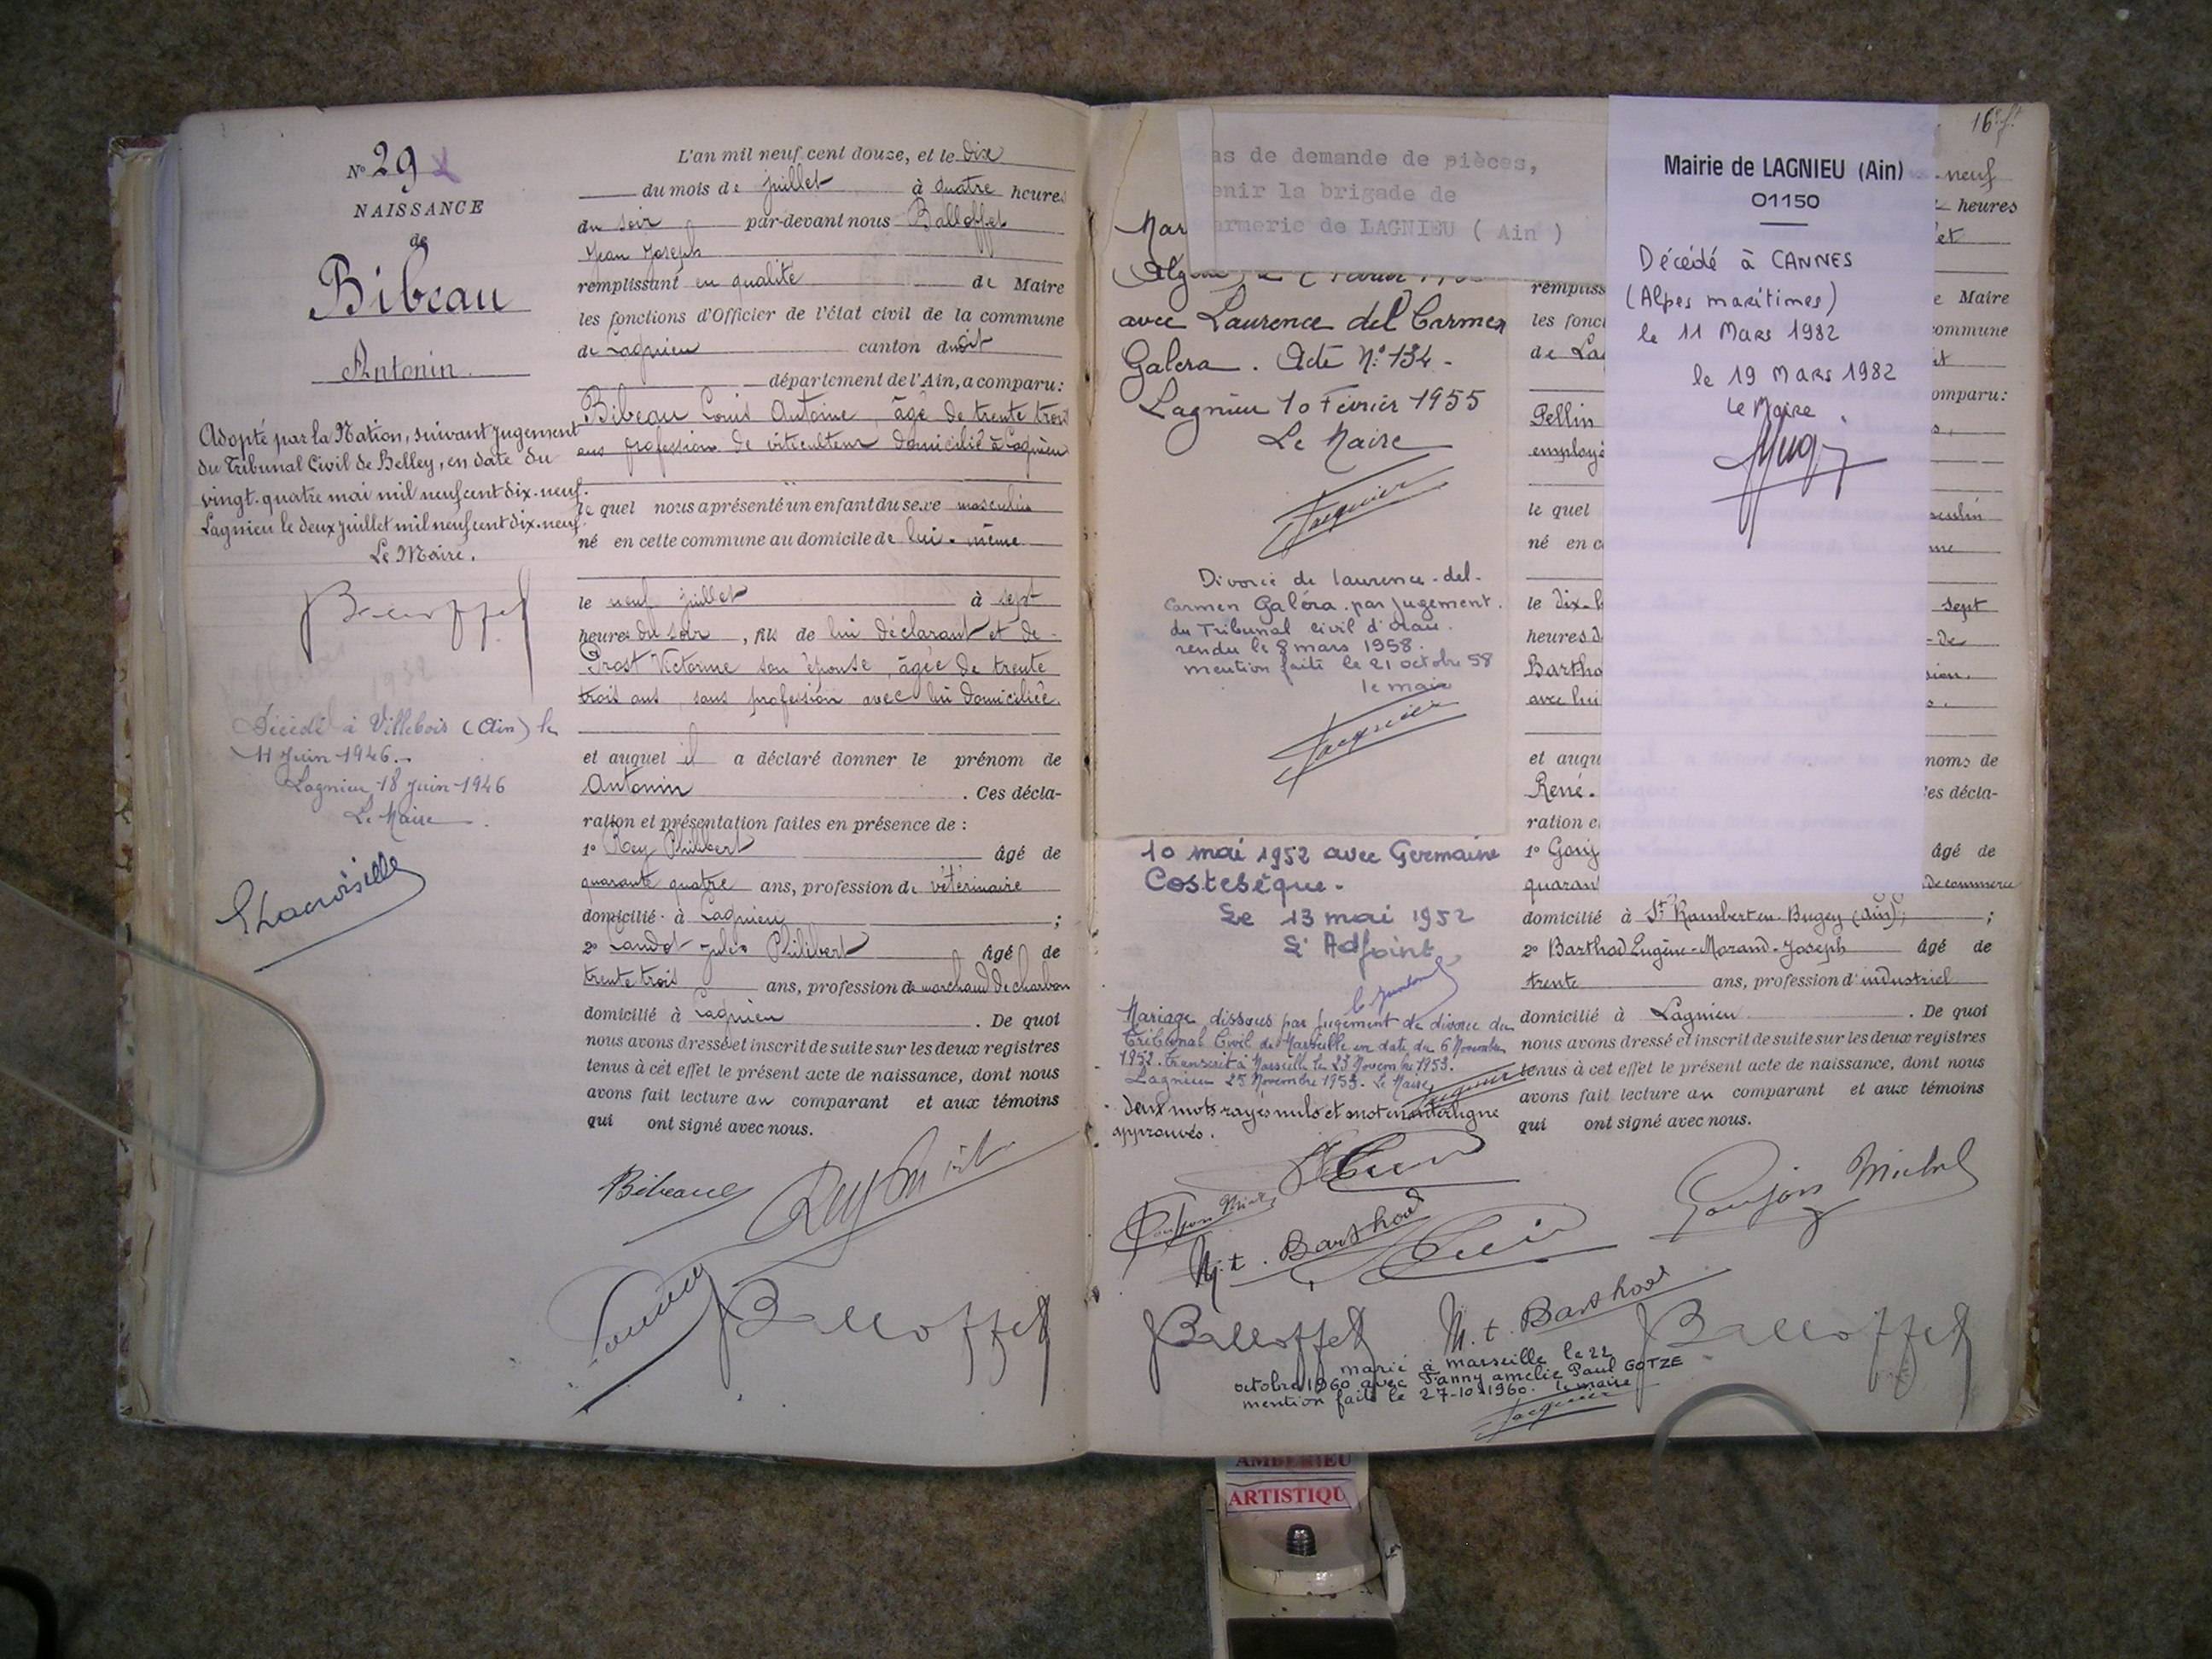 N° 29
NAISSANCE
de
Bibeau
Antonin
Adopté par la Nation, suivant jugement
du Tribunal Civil de Belley, en date du
vingt-quatre mai mil neuf cent dix-neuf.
Lagnieu le deux juillet mil neuf cent dix-neuf.
Le Maire.
Balloffet
Décédé à Villebois (Ain) le
11 Juin 1946.
Lagnieu, 18 Juin 1946
Le Maire
L'an mil neuf cent douze, et le dix
du mois de juillet à quatre heures
du soir par-devant nous Balloffet
Jean Joseph
remplissant en qualité de Maire
les fonctions d'Officier de l'état civil de la commune
de Lagnieu canton dudit
département de l'Ain, a comparu:
Bibeau Louis Antoine, âgé de trente trois
ans profession de viticulteur domicilié à Lagnieu
le quel nous a présenté un enfant du sexe masculin
né en cette commune au domicile de lui-même
le neuf juillet à sept
heures du soir, fils de lui déclarant et de
Prost Victorine son épouse, âgée de trente
trois ans, sans profession avec lui domiciliée.
et auquel il a déclaré donner le prénom de
Antonin. Ces décla-
ration et présentation faites en présence de :
1° Rey Philibert âgé de
quarante quatre ans, profession de vétérinaire
domicilié à Lagnieu ;
2° Jules Philibert âgé de
trente trois ans, profession de marchand de charbon
domicilié à Lagnieu. De quoi
nous avons dressé et inscrit de suite sur les deux registres
tenus à cet effet le présent acte de naissance, dont nous
avons fait lecture au comparant et aux témoins
qui ont signé avec nous.
Bibeau
Balloffet
as de demande de pièces,
enir la brigade de
armerie de LAGNIEU ( Ain )
Mar
avec Laurence del Carmen
Galera. Acte N° 134.
Lagnieu 10 Février 1955
Le Maire
Jacquier
Divorcé de Laurence-del-
Carmen Galéra par jugement
du Tribunal civil d'Oran.
rendu le 8 mars 1958.
mention faite le 21 octobre 58
le maire
Jacquier
10 mai 1952 avec Germaine
Costesèque.
Le 13 mai 1952
L'Adjoint
Mariage dissous par jugement de divorce du
Tribunal Civil de Marseille en date du 6 Novembre
1952. Transcrit à Marseille le 23 Novembre 1953.
Lagnieu 25 Novembre 1953. Le Maire
Jacquier
Deux mots rayés nuls et
approuvés.
M.t. Barthod
Balloffet
marié à Marseille le 22
octobre 1960 avec Fanny Amélie Paul GOTZE
mention faite le 27-10-1960. le maire
Jacquier
16
Mairie de LAGNIEU (Ain)
01150
Décédé à CANNES
(Alpes maritimes)
le 11 Mars 1982
le 19 Mars 1982
Le Maire
neuf
heures
et
rempliss
e Maire
les fonc
ommune
de La
it
omparu:
Pellin
employé
le quel
sculin
né en c
me
le dix-h
sept
heures d
de
Bartho
sion.
avec lui
et auqu
noms de
René.
es décla-
ration e
1° Gouj
âgé de
quaran
de commerce
domicilié à St Rambert en Bugey (Ain) ;
2° Barthod Eugène-Morand-Joseph âgé de
trente ans, profession d'industriel
domicilié à Lagnieu. De quoi
nous avons dressé et inscrit de suite sur les deux registres
tenus à cet effet le présent acte de naissance, dont nous
avons fait lecture au comparant et aux témoins
qui ont signé avec nous.
Goujon Michel
M.t. Barthod
Balloffet
AMBERIEU
ARTISTIQU